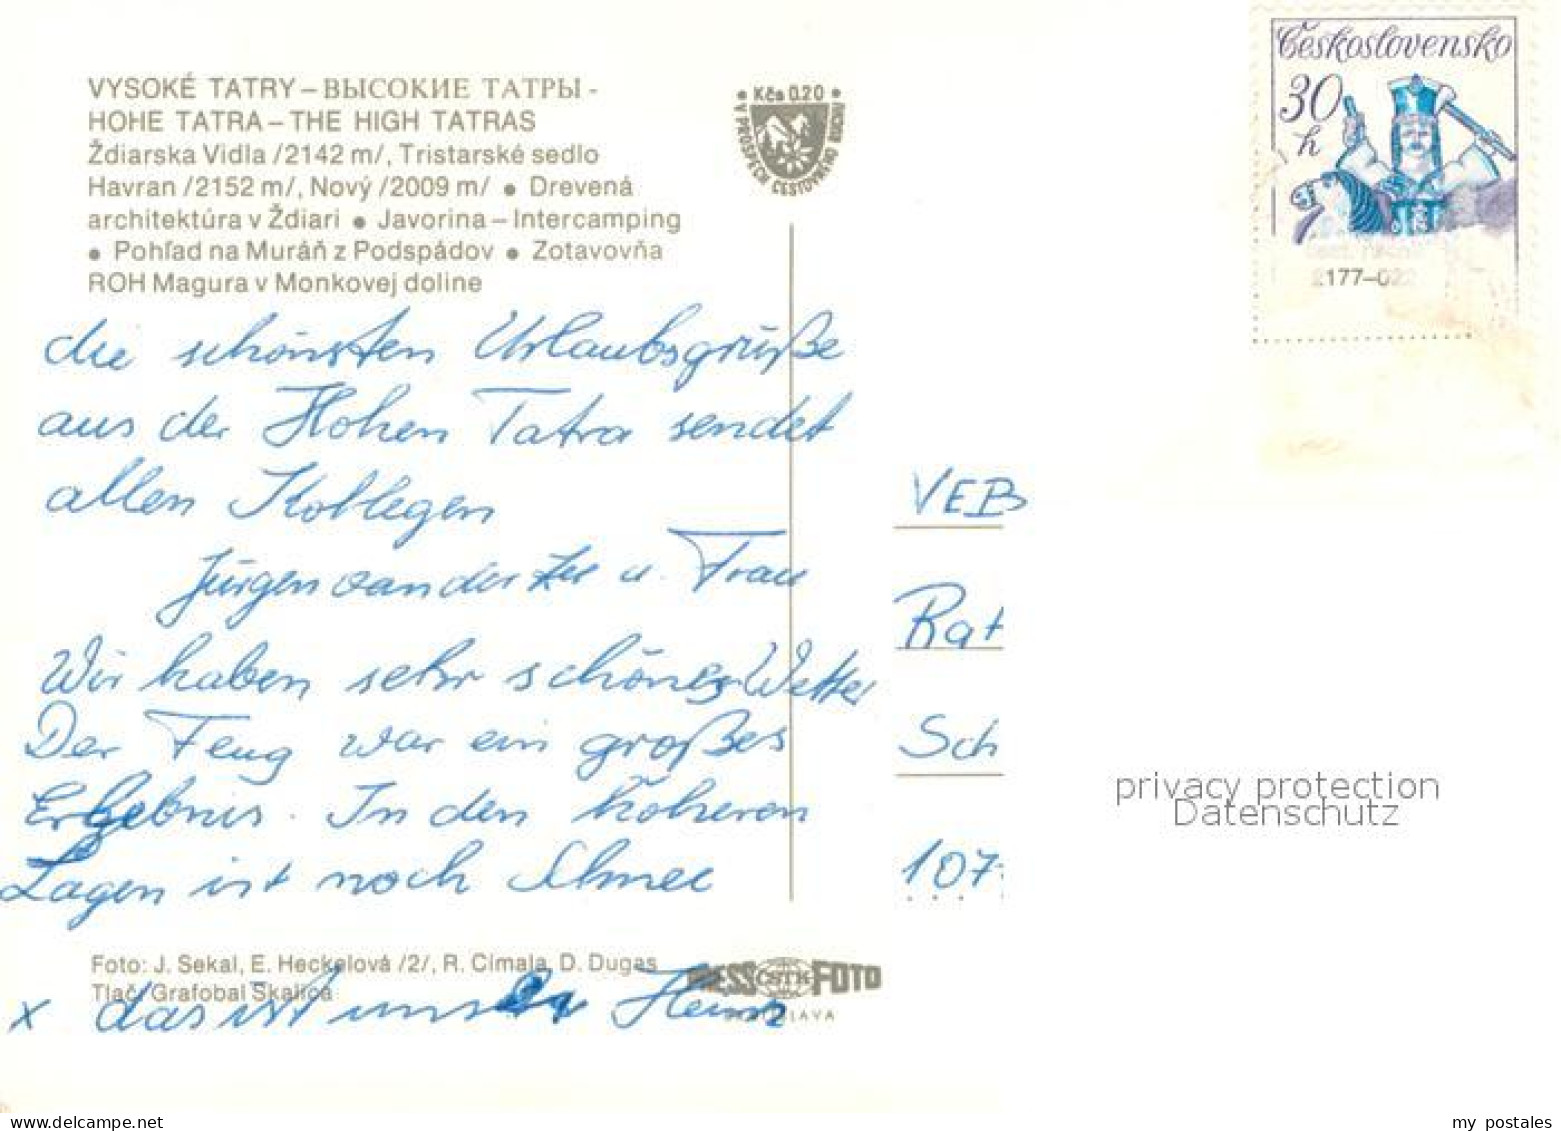 VYSOKÉ TATRY – ВЫСОКИЕ ТАТРЫ -
HOHE TATRA – THE HIGH TATRAS
Ždiarska Vidla /2142 m/, Tristarské sedlo
Havran /2152 m/, Nový /2009 m/ ● Drevená
architektúra v Ždiari ● Javorina – Intercamping
● Pohľad na Muráň z Podspádov ● Zotavovňa
ROH Magura v Monkovej doline
• Kčs 0.20 •
V PROSPECH CESTOVNÉHO RUCHU
Československo
30
h
2177–02
die schönsten Urlaubsgrüße
aus der Hohen Tatra sendet
allen Kollegen
Jürgen van der Zee u. Frau
Wir haben sehr schönes Wetter
Der Feug war ein großes
Ergebnis. In den höheren
Lagen ist noch Schnee
VEB
Rat
Sch
107
privacy protection
Datenschutz
Foto: J. Sekal, E. Heckelová /2/, R. Cimala, D. Dugas
Tlač: Grafobal Skalica
PRESS ČSTK FOTO
BRATISLAVA
x das ist unser Heim
my postales